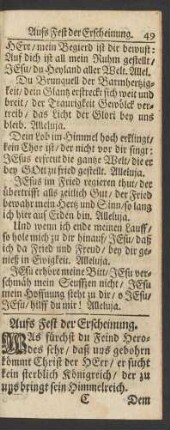 Auffs Fest der Erscheinung. 49
HErr/ mein Begierd ist dir bewust:
Auf dich ist all mein Ruhm gestellt/
JEsu/ du Heyland aller Welt. Allel.
Du Brunquell der Barmhertzig-
keit/ dein Glantz erstreckt sich weit und
breit/ der Traurigkeit Gewölck ver-
treib/ das Licht der Glori bey uns
bleib. Alleluja.
Dein Lob im Himmel hoch erklingt/
kein Chor ist/ der nicht vor dir singt:
JEsus erfreut die gantze Welt/ die er
bey GOtt zu fried gestellt. Alleluja.
JEsus im Fried regieren thut/ der
übertrifft alls zeitlich Gut/ der Fried
bewahr mein Hertz und Sinn/ so lang
ich hier auf Erden bin. Alleluja.
Und wenn ich ende meinen Lauff/
so hole mich zu dir hinauf/ JEsu/ daß
ich da Fried und Freud/ bey dir ge-
nieß in Ewigkeit. Alleluja.
JEsu erhöre meine Bitt/ JEsu ver-
schmäh mein Seuffzen nicht/ JEsu
mein Hoffnung steht zu dir/ o JEsu/
JEsu/ hilff du mir! Alleluja.
Auffs Fest der Erscheinung.
WAs fürchst du Feind Hero-
des sehr/ daß uns gebohrn
kömmt Christ der HErr/ er sucht
kein sterblich Königreich/ der zu
uns bringt sein Himmelreich.
C Dem